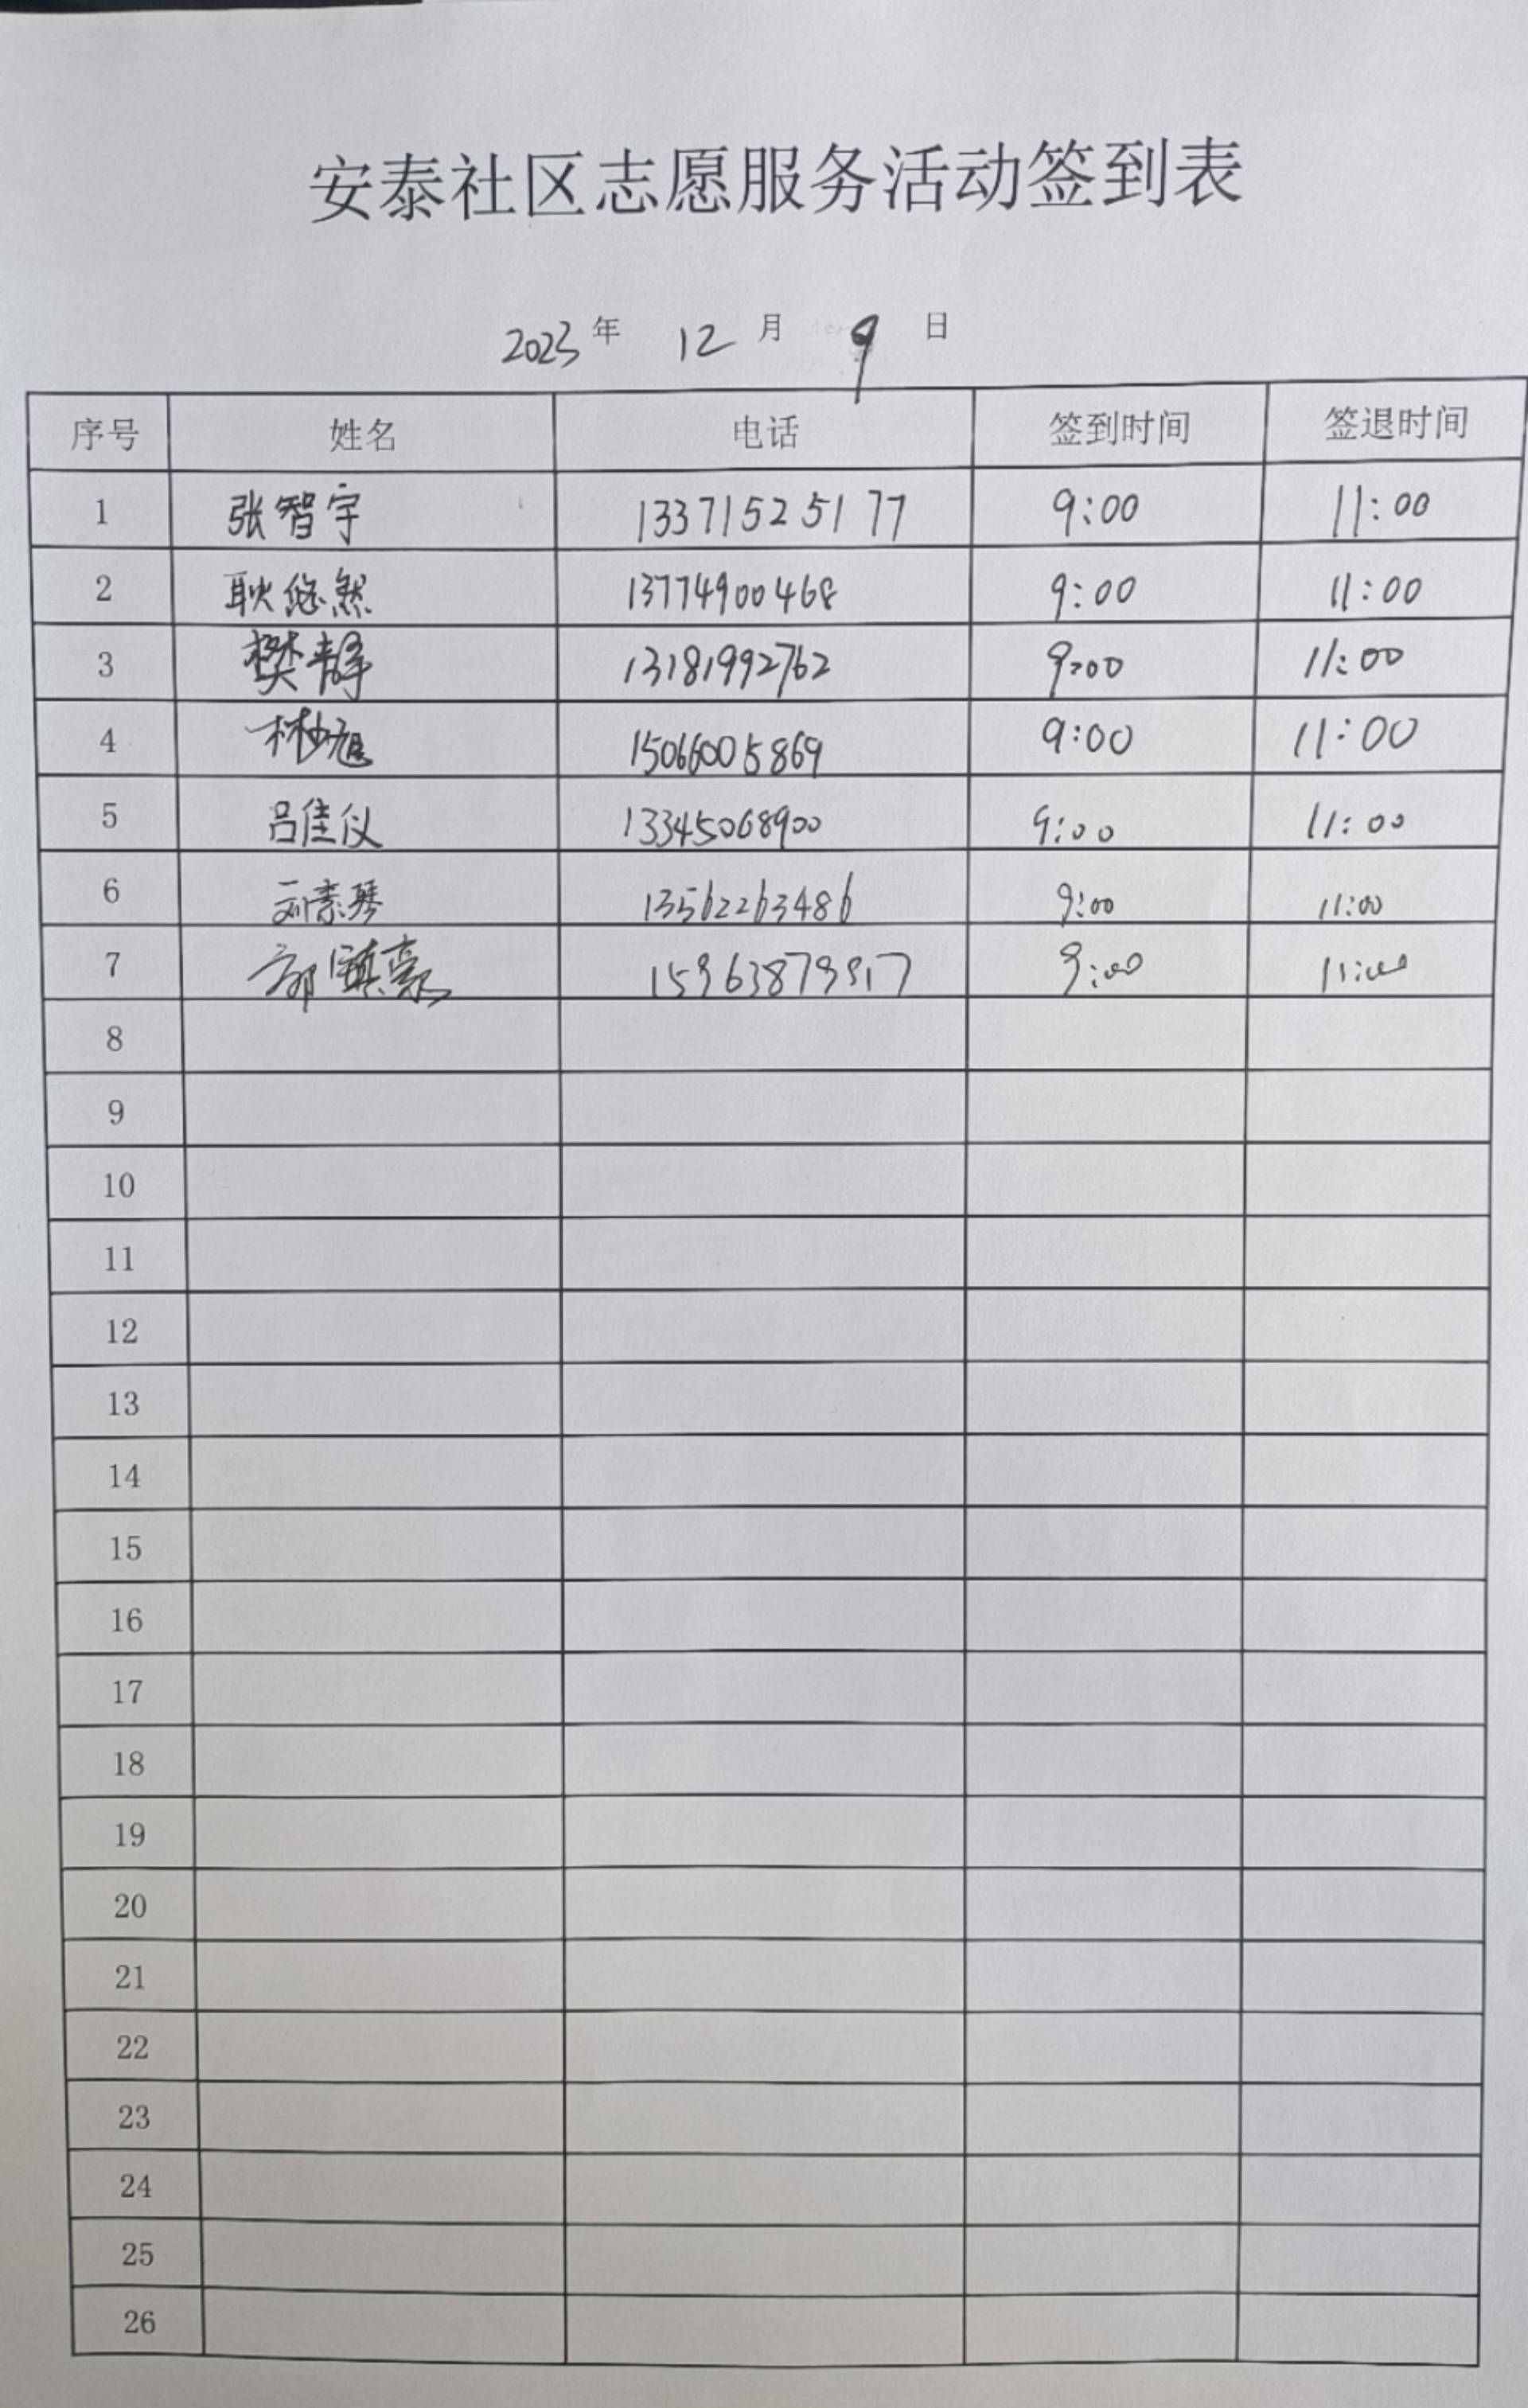 安泰社区志愿服务活动签到表
2023 年 12 月 9 日
序号 姓名 电话 签到时间 签退时间
1 张智宇 13371525177 9:00 11:00
2 耿悠然 13774900468 9:00 11:00
3 樊静 13181992762 9:00 11:00
4 15066005869 9:00 11:00
5 吕佳仪 13345068900 9:00 11:00
6 刘素琴 13562263486 9:00 11:00
7 9:00 11:00
8
9
10
11
12
13
14
15
16
17
18
19
20
21
22
23
24
25
26